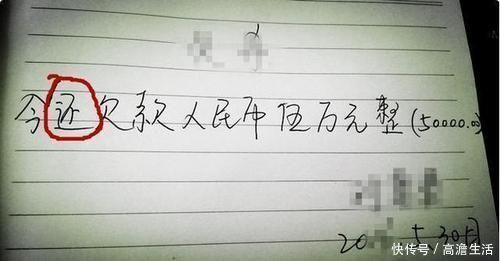 今还欠款人民币伍万元整(50000.00
20 30日
快传号/高澹生活